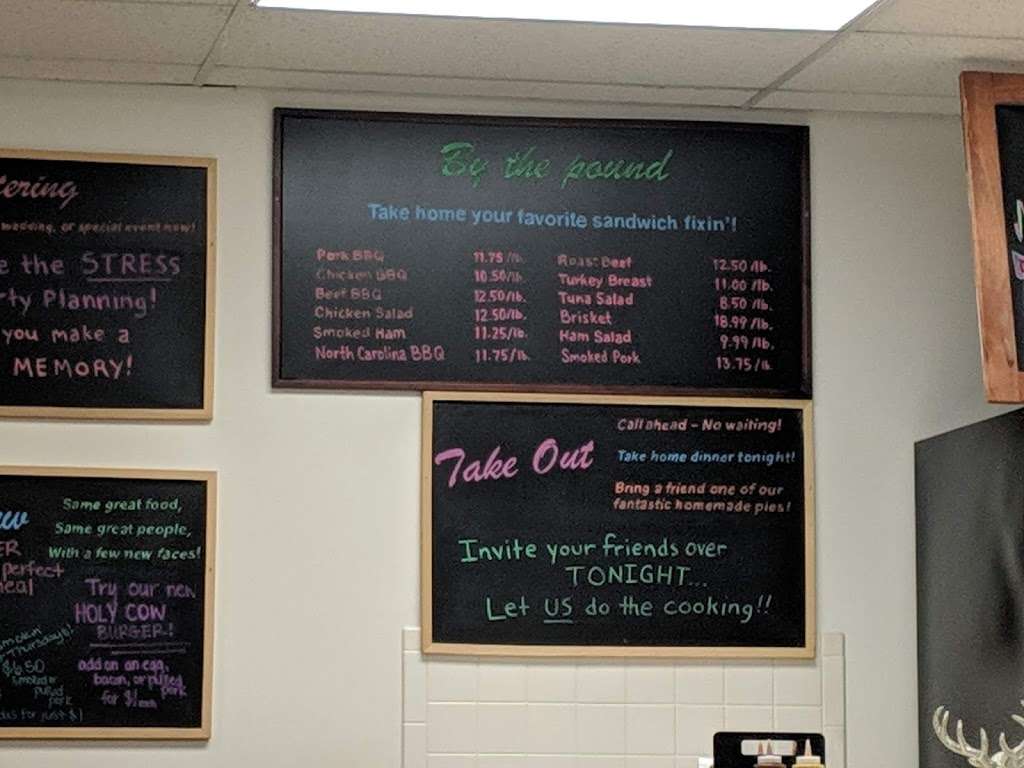 By the pound
Take home your favorite sandwich fixin'!
Pork BBQ 11.75 /lb.
Chicken BBQ 10.50/lb.
Beef BBQ 12.50/lb.
Chicken Salad 12.50/lb.
Smoked Ham 11.25/lb.
North Carolina BBQ 11.75/lb.
Roast Beef 12.50 /lb.
Turkey Breast 11.00 /lb.
Tuna Salad 8.50 /lb.
Brisket 18.99 /lb.
Ham Salad 9.99 /lb.
Smoked Pork 13.75/lb.
tering
wedding, or special event now!
e the STRESS
ty Planning!
you make a
MEMORY!
Take Out
Call ahead - No waiting!
Take home dinner tonight!
Bring a friend one of our
fantastic homemade pies!
Invite your friends over
TONIGHT...
Let US do the cooking!!
ew
Same great food,
Same great people,
With a few new faces!
ER
perfect
eal
Try our new
HOLY COW
BURGER!
add on an egg,
bacon, or pulled
pork
for $1 each
Thursdays!
$6.50
smoked or
pulled
pork
for just $1